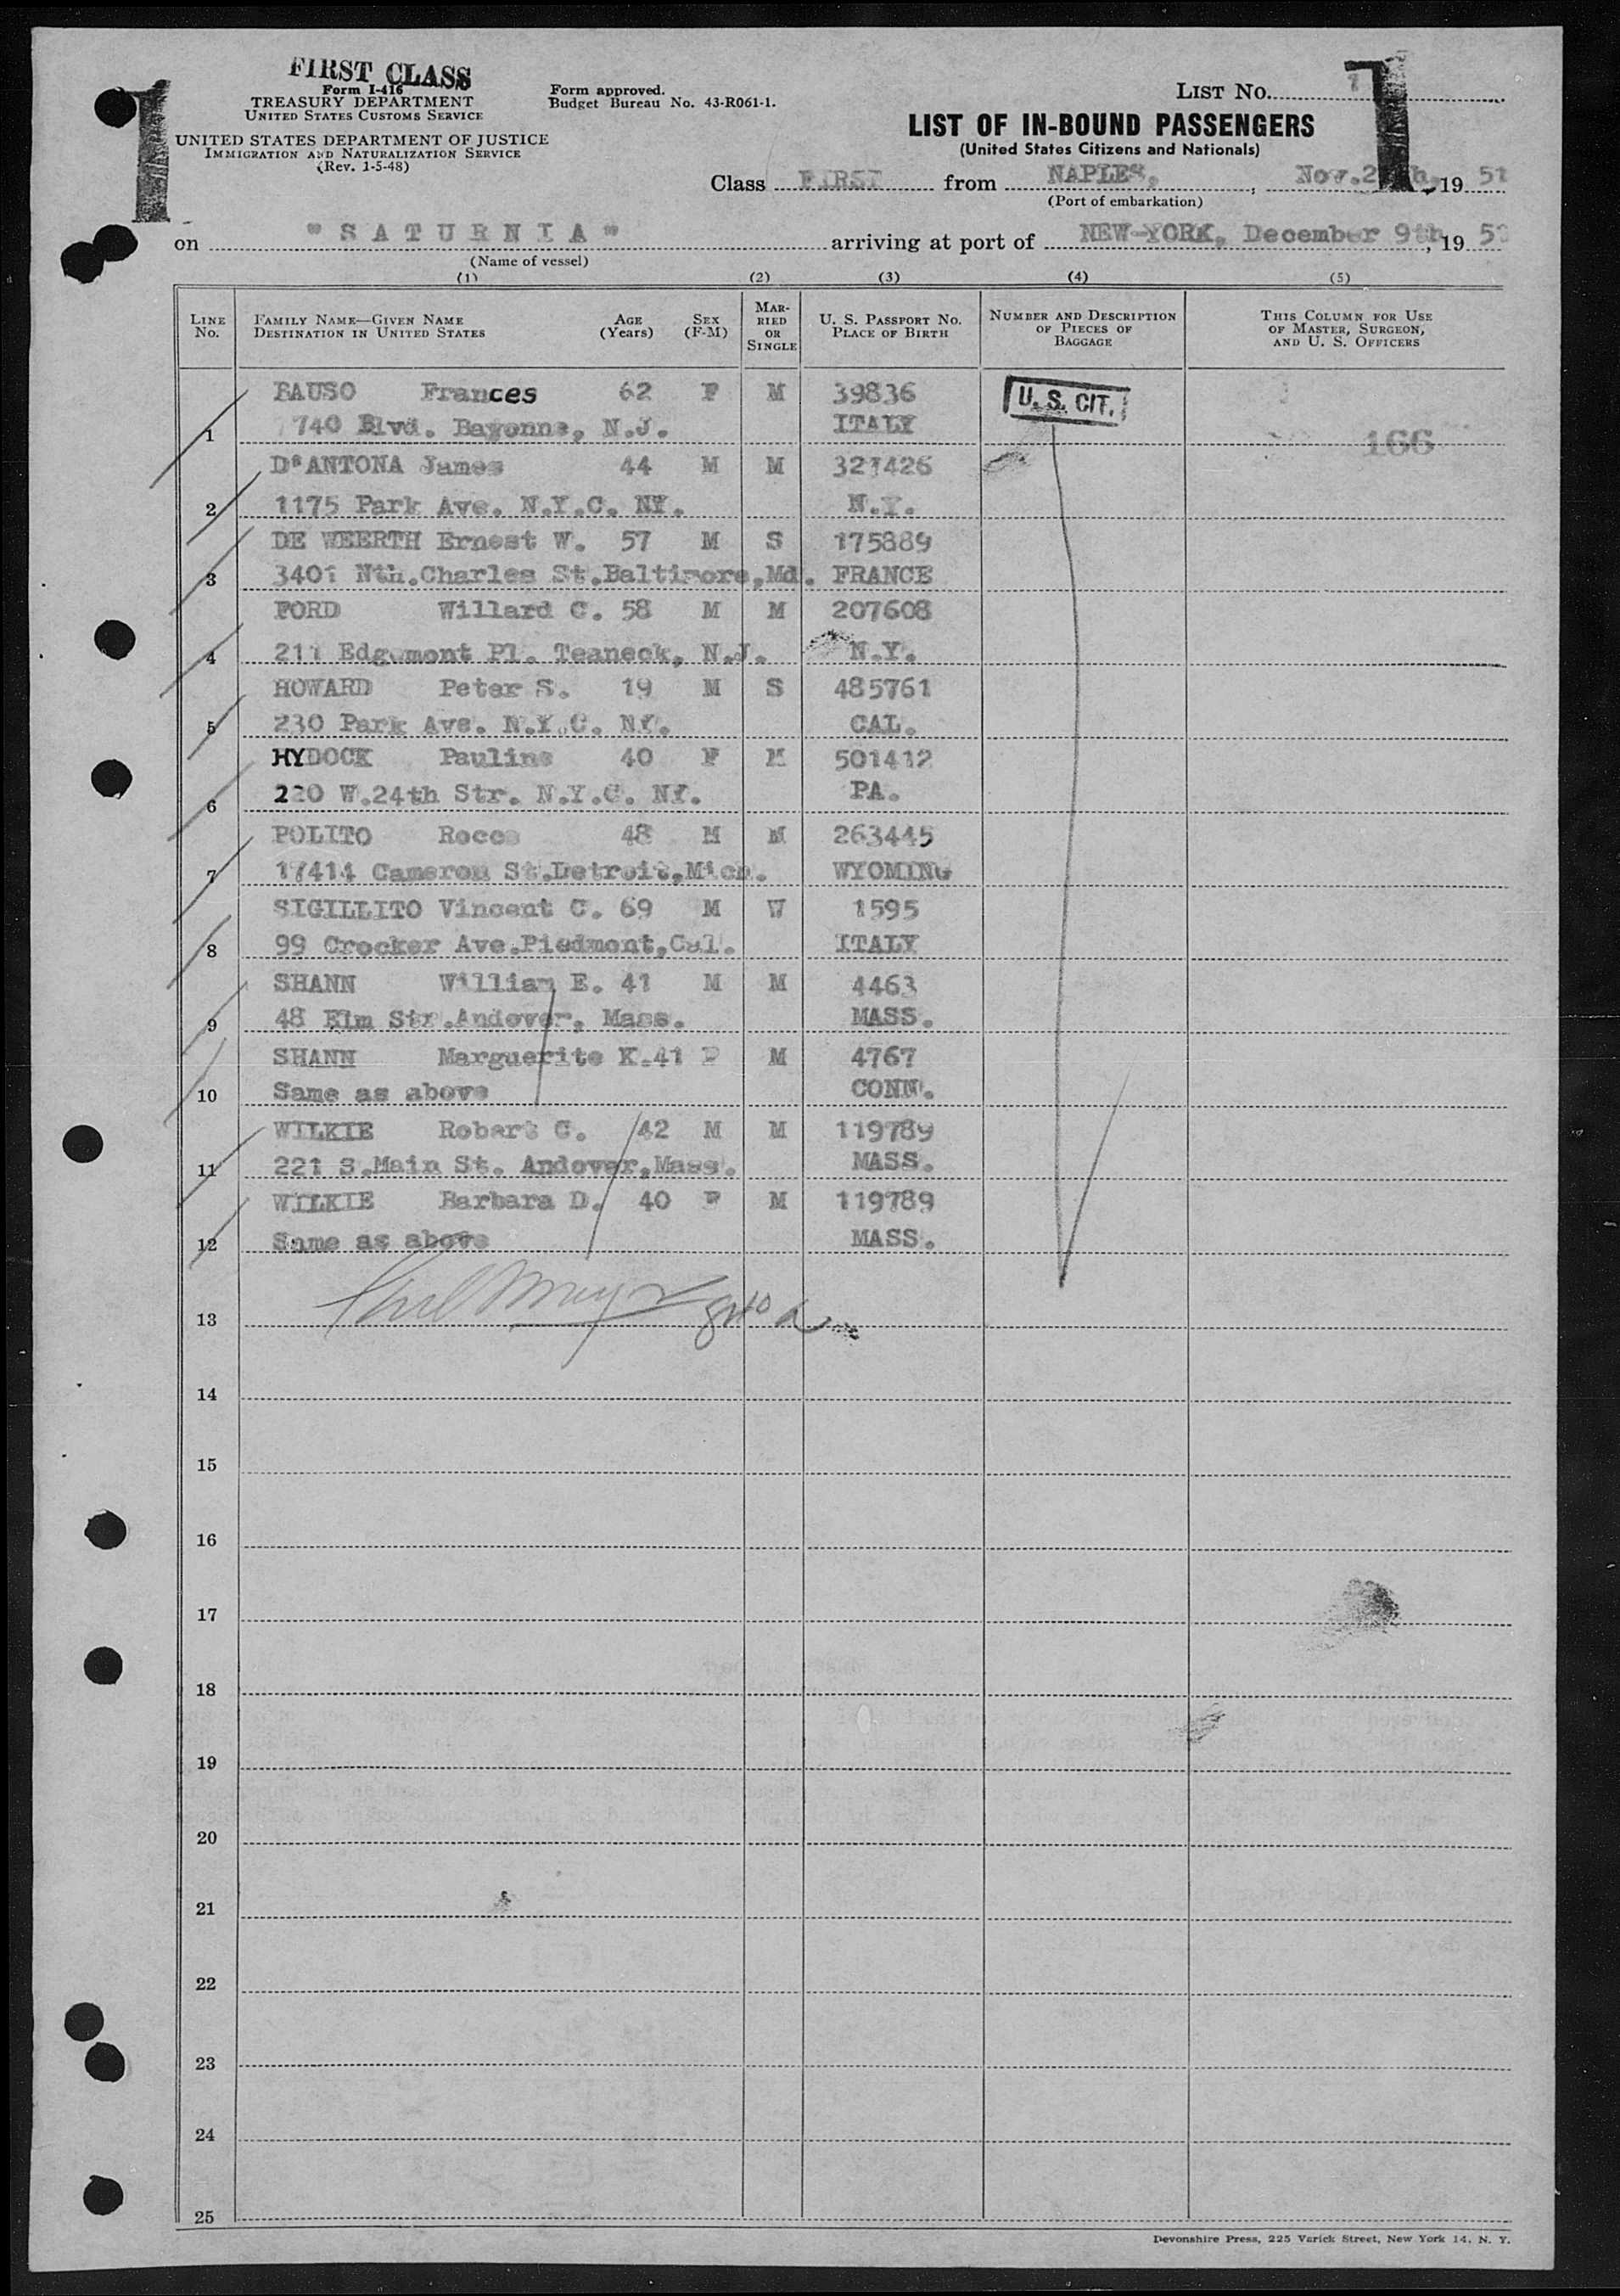 FIRST CLASS
Form I-416
TREASURY DEPARTMENT
UNITED STATES CUSTOMS SERVICE
UNITED STATES DEPARTMENT OF JUSTICE
IMMIGRATION AND NATURALIZATION SERVICE
(Rev. 1-5-48)
Form approved.
Budget Bureau No. 43-R061-1.
LIST NO. 1
LIST OF IN-BOUND PASSENGERS
(United States Citizens and Nationals)
Class FIRST from NAPLES, , Nov. 19 51
(Port of embarkation)
on "SATURNIA" arriving at port of NEW-YORK, December 9th, 19
(Name of vessel)
(1) (2) (3) (4) (5)
LINE NO. FAMILY NAME—GIVEN NAME DESTINATION IN UNITED STATES AGE (Years) SEX (F-M) MARRIED OR SINGLE U. S. PASSPORT NO. PLACE OF BIRTH NUMBER AND DESCRIPTION OF PIECES OF BAGGAGE THIS COLUMN FOR USE OF MASTER, SURGEON, AND U. S. OFFICERS
BAUSO Frances 62 F M 39836 U. S. CIT.
1 740 Blvd. Bayonne, N.J. ITALY 166
D'ANTONA James 44 M M 327426
2 1175 Park Ave. N.Y.C. NY. N.Y.
DE WEERTH Ernest W. 57 M S 175889
3 3401 Nth.Charles St.Baltimore,Md. FRANCE
FORD Willard C. 58 M M 207608
4 211 Edgemont Pl. Teaneck, N.J. N.Y.
HOWARD Peter S. 19 M S 485761
5 230 Park Ave. N.Y.C. NY. CAL.
HYDOCK Pauline 40 F M 501412
6 220 W.24th Str. N.Y.C. NY. PA.
POLITO Rocco 48 M M 263445
7 17414 Cameron St.Detroit,Mich. WYOMING
SIGILLITO Vincent C. 69 M W 1595
8 99 Crocker Ave.Piedmont,Cal. ITALY
SHANN William E. 41 M M 4463
9 48 Elm Str.Andover, Mass. MASS.
SHANN Marguerite K.41 F M 4767
10 Same as above CONN.
WILKIE Robert G. 42 M M 119789
11 221 S.Main St. Andover,Mass. MASS.
WILKIE Barbara D. 40 F M 119789
12 Same as above MASS.
13
14
15
16
17
18
19
20
21
22
23
24
25
Devonshire Press, 225 Varick Street, New York 14, N. Y.